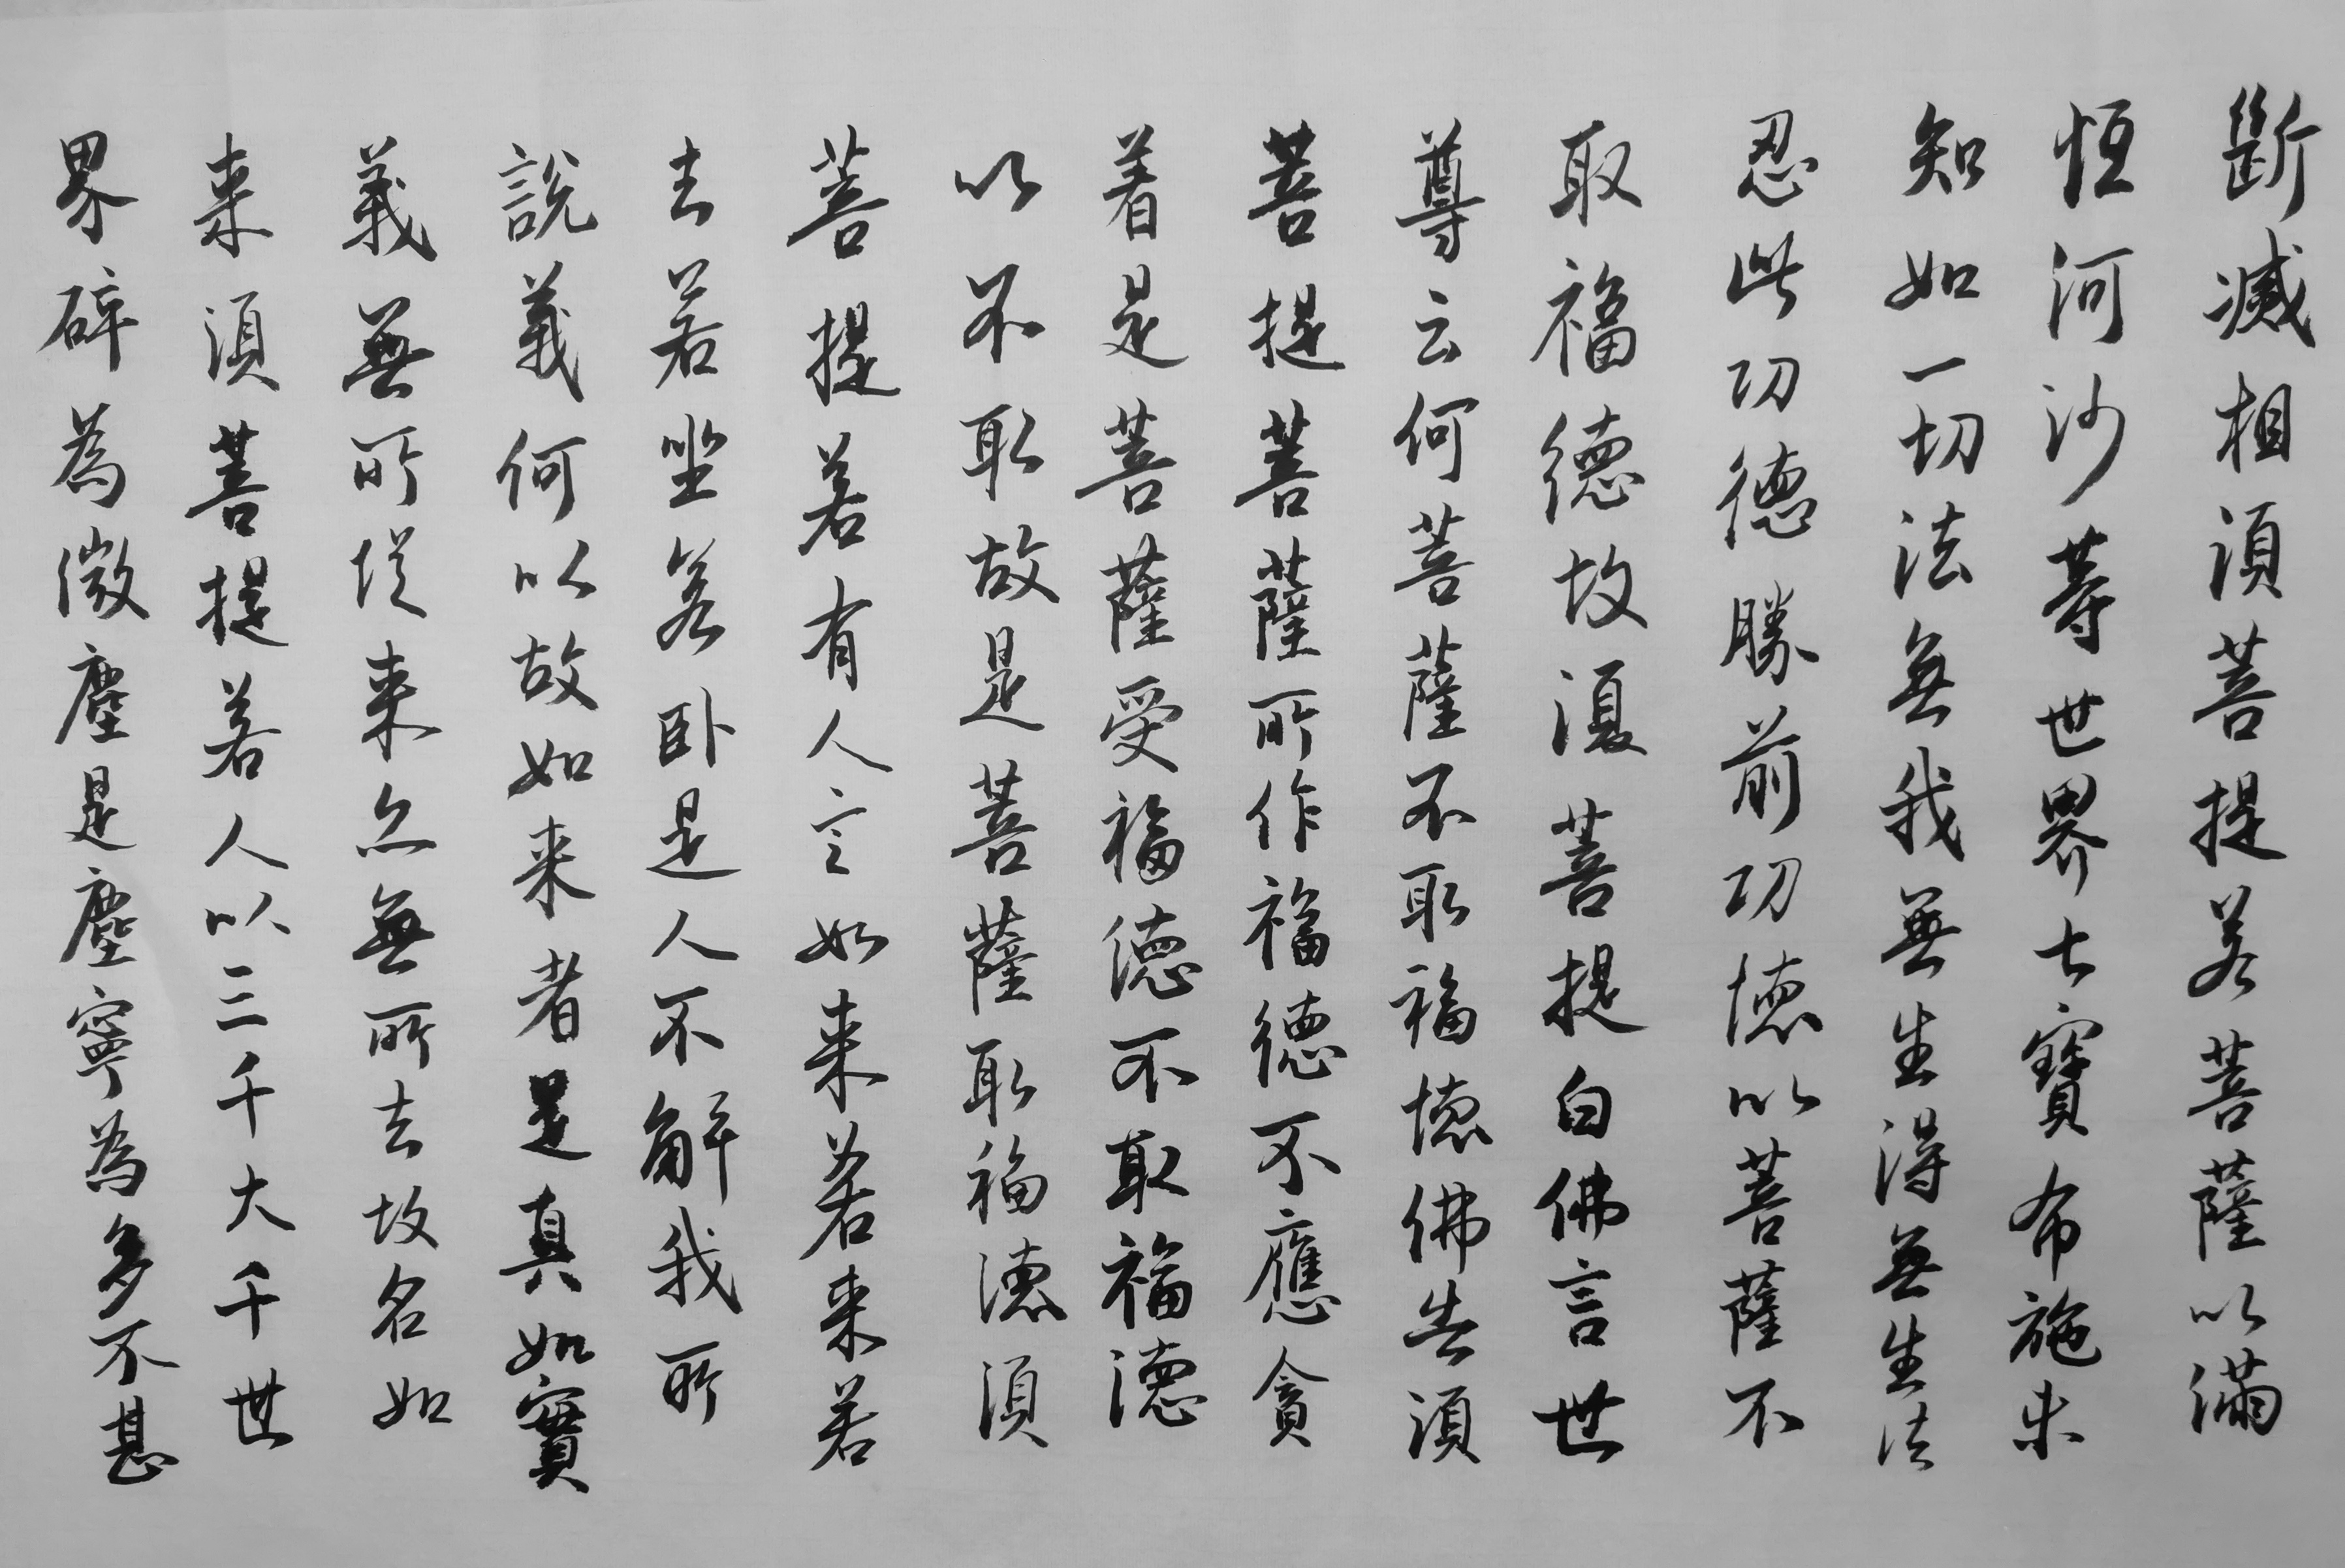 斷滅相須菩提若菩薩以滿
恒河沙等世界七寶布施未
知如一切法無我無生得無生法
忍此功德勝前功德以菩薩不
取福德故須菩提白佛言世
尊云何菩薩不取福德佛告須
菩提菩薩所作福德不應貪
着是菩薩受福德不取福德
以不取故是菩薩取福德須
菩提若有人言如来若来若
去若坐若卧是人不解我所
說義何以故如来者是真如實
義無所從来亦無所去故名如
来須菩提若人以三千大千世
界碎為微塵是塵寧為多不甚